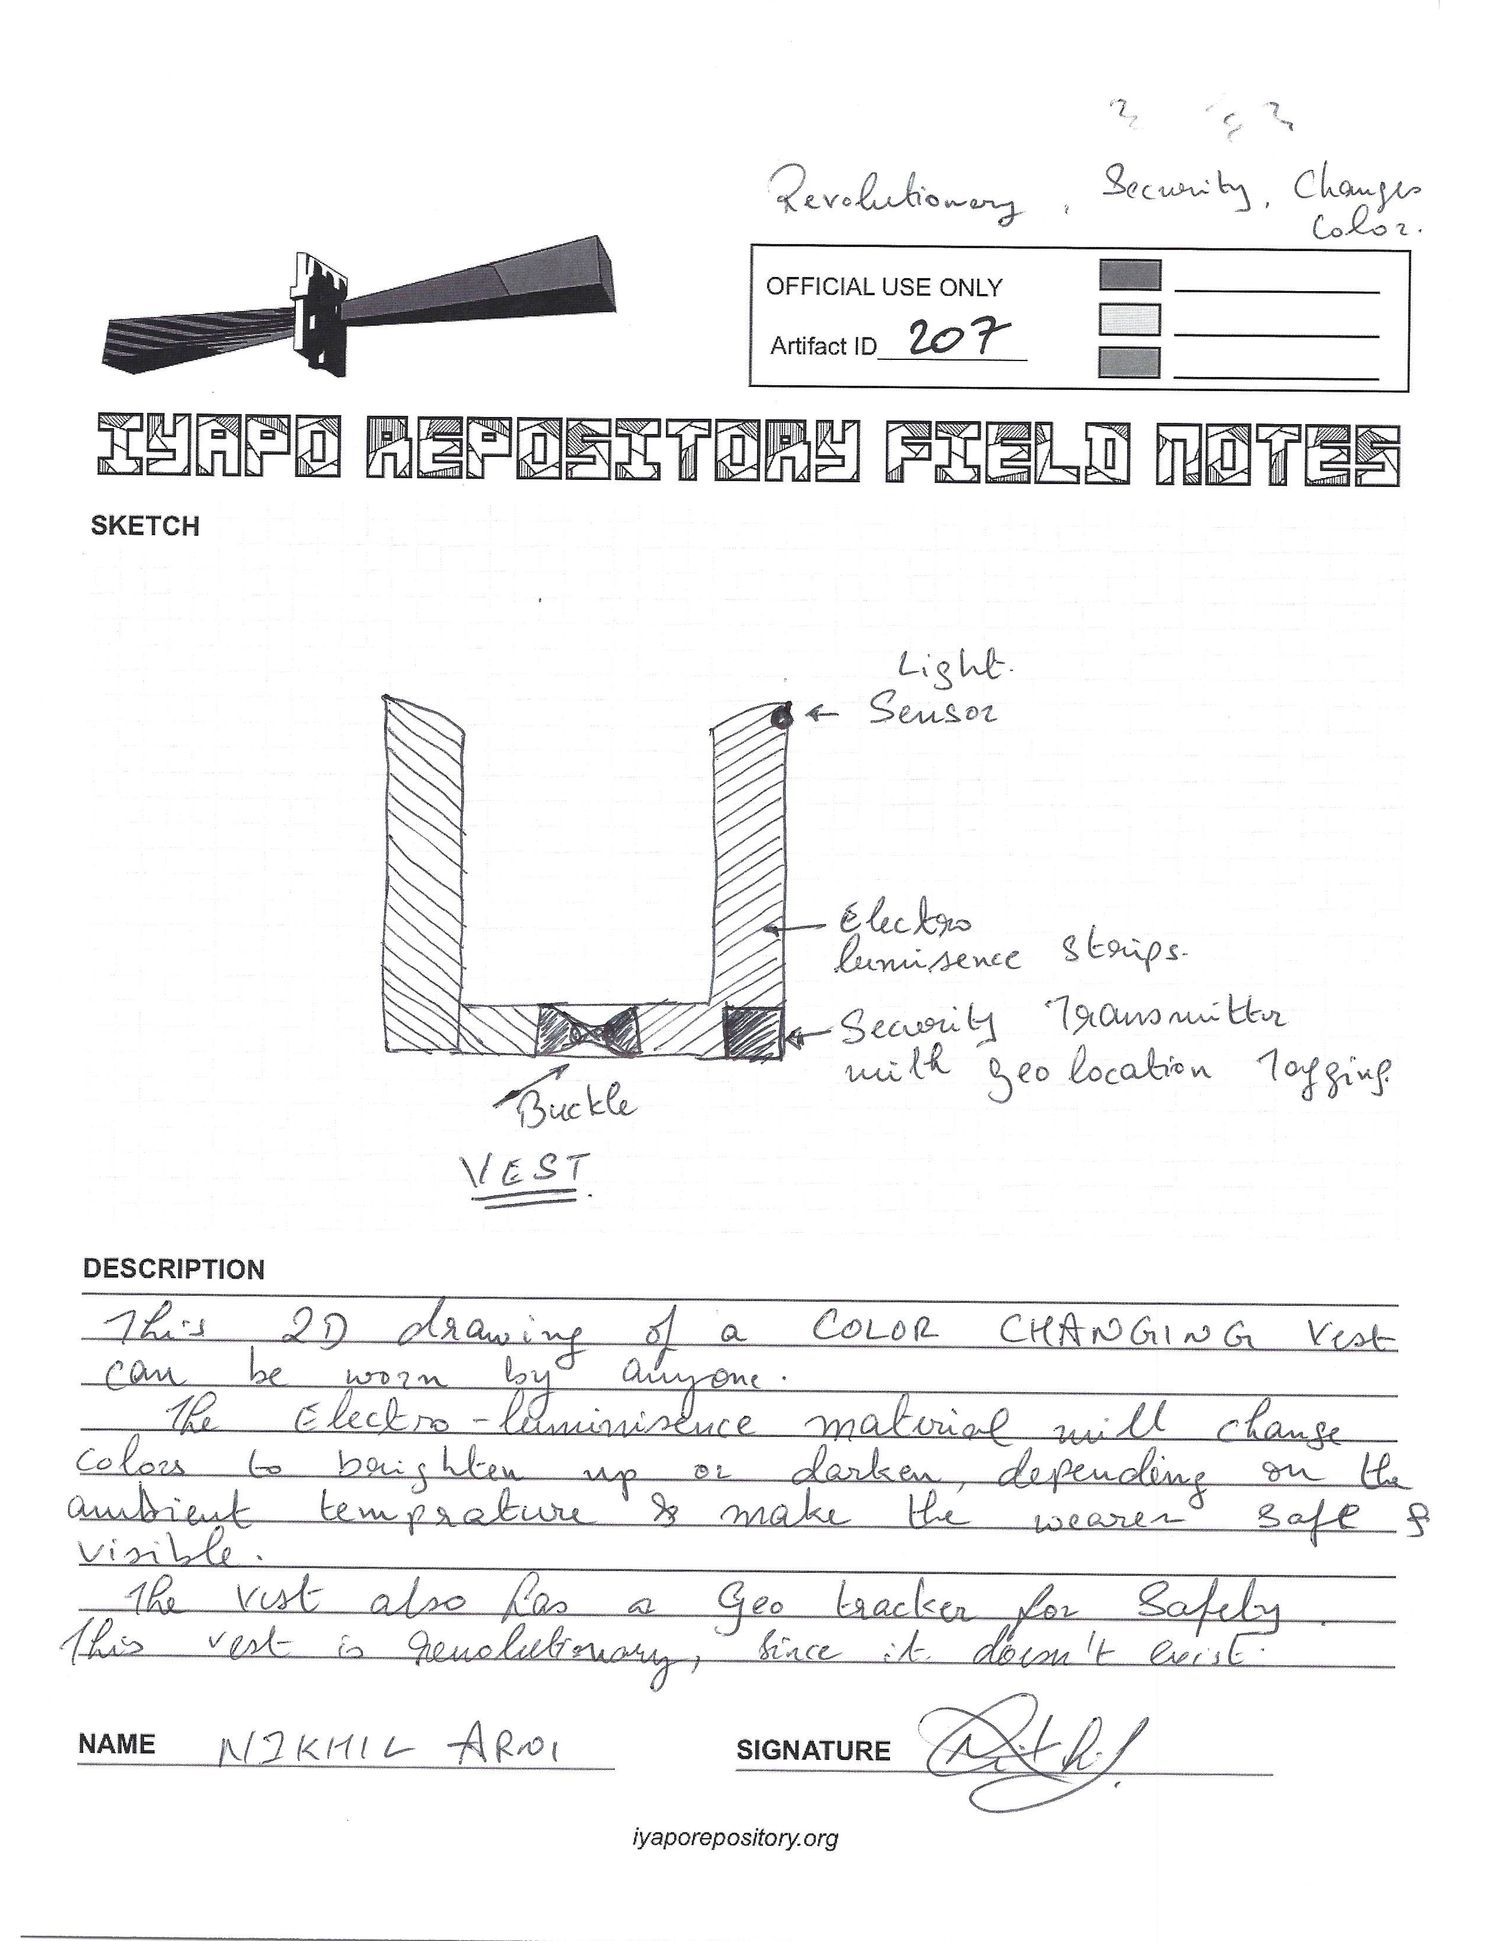 Revolutionary, Security, Changes
Color.
OFFICIAL USE ONLY
Artifact ID 207
IYAPO REPOSITORY FIELD NOTES
SKETCH
Light.
Sensor
Electro
luminsence strips.
Security Transmitter
with geo location Tagging.
Buckle
VEST.
DESCRIPTION
This 2D drawing of a COLOR CHANGING Vest
can be worn by anyone.
The Electro-luminisence material will change
colors to brighten up or darken, depending on the
ambient temprature & make the wearer safe &
visible.
The vest also has a Geo tracker for Safety.
This vest is revolutionary, since it doesn't exist.
NAME NIKHIL
SIGNATURE
iyaporepository.org